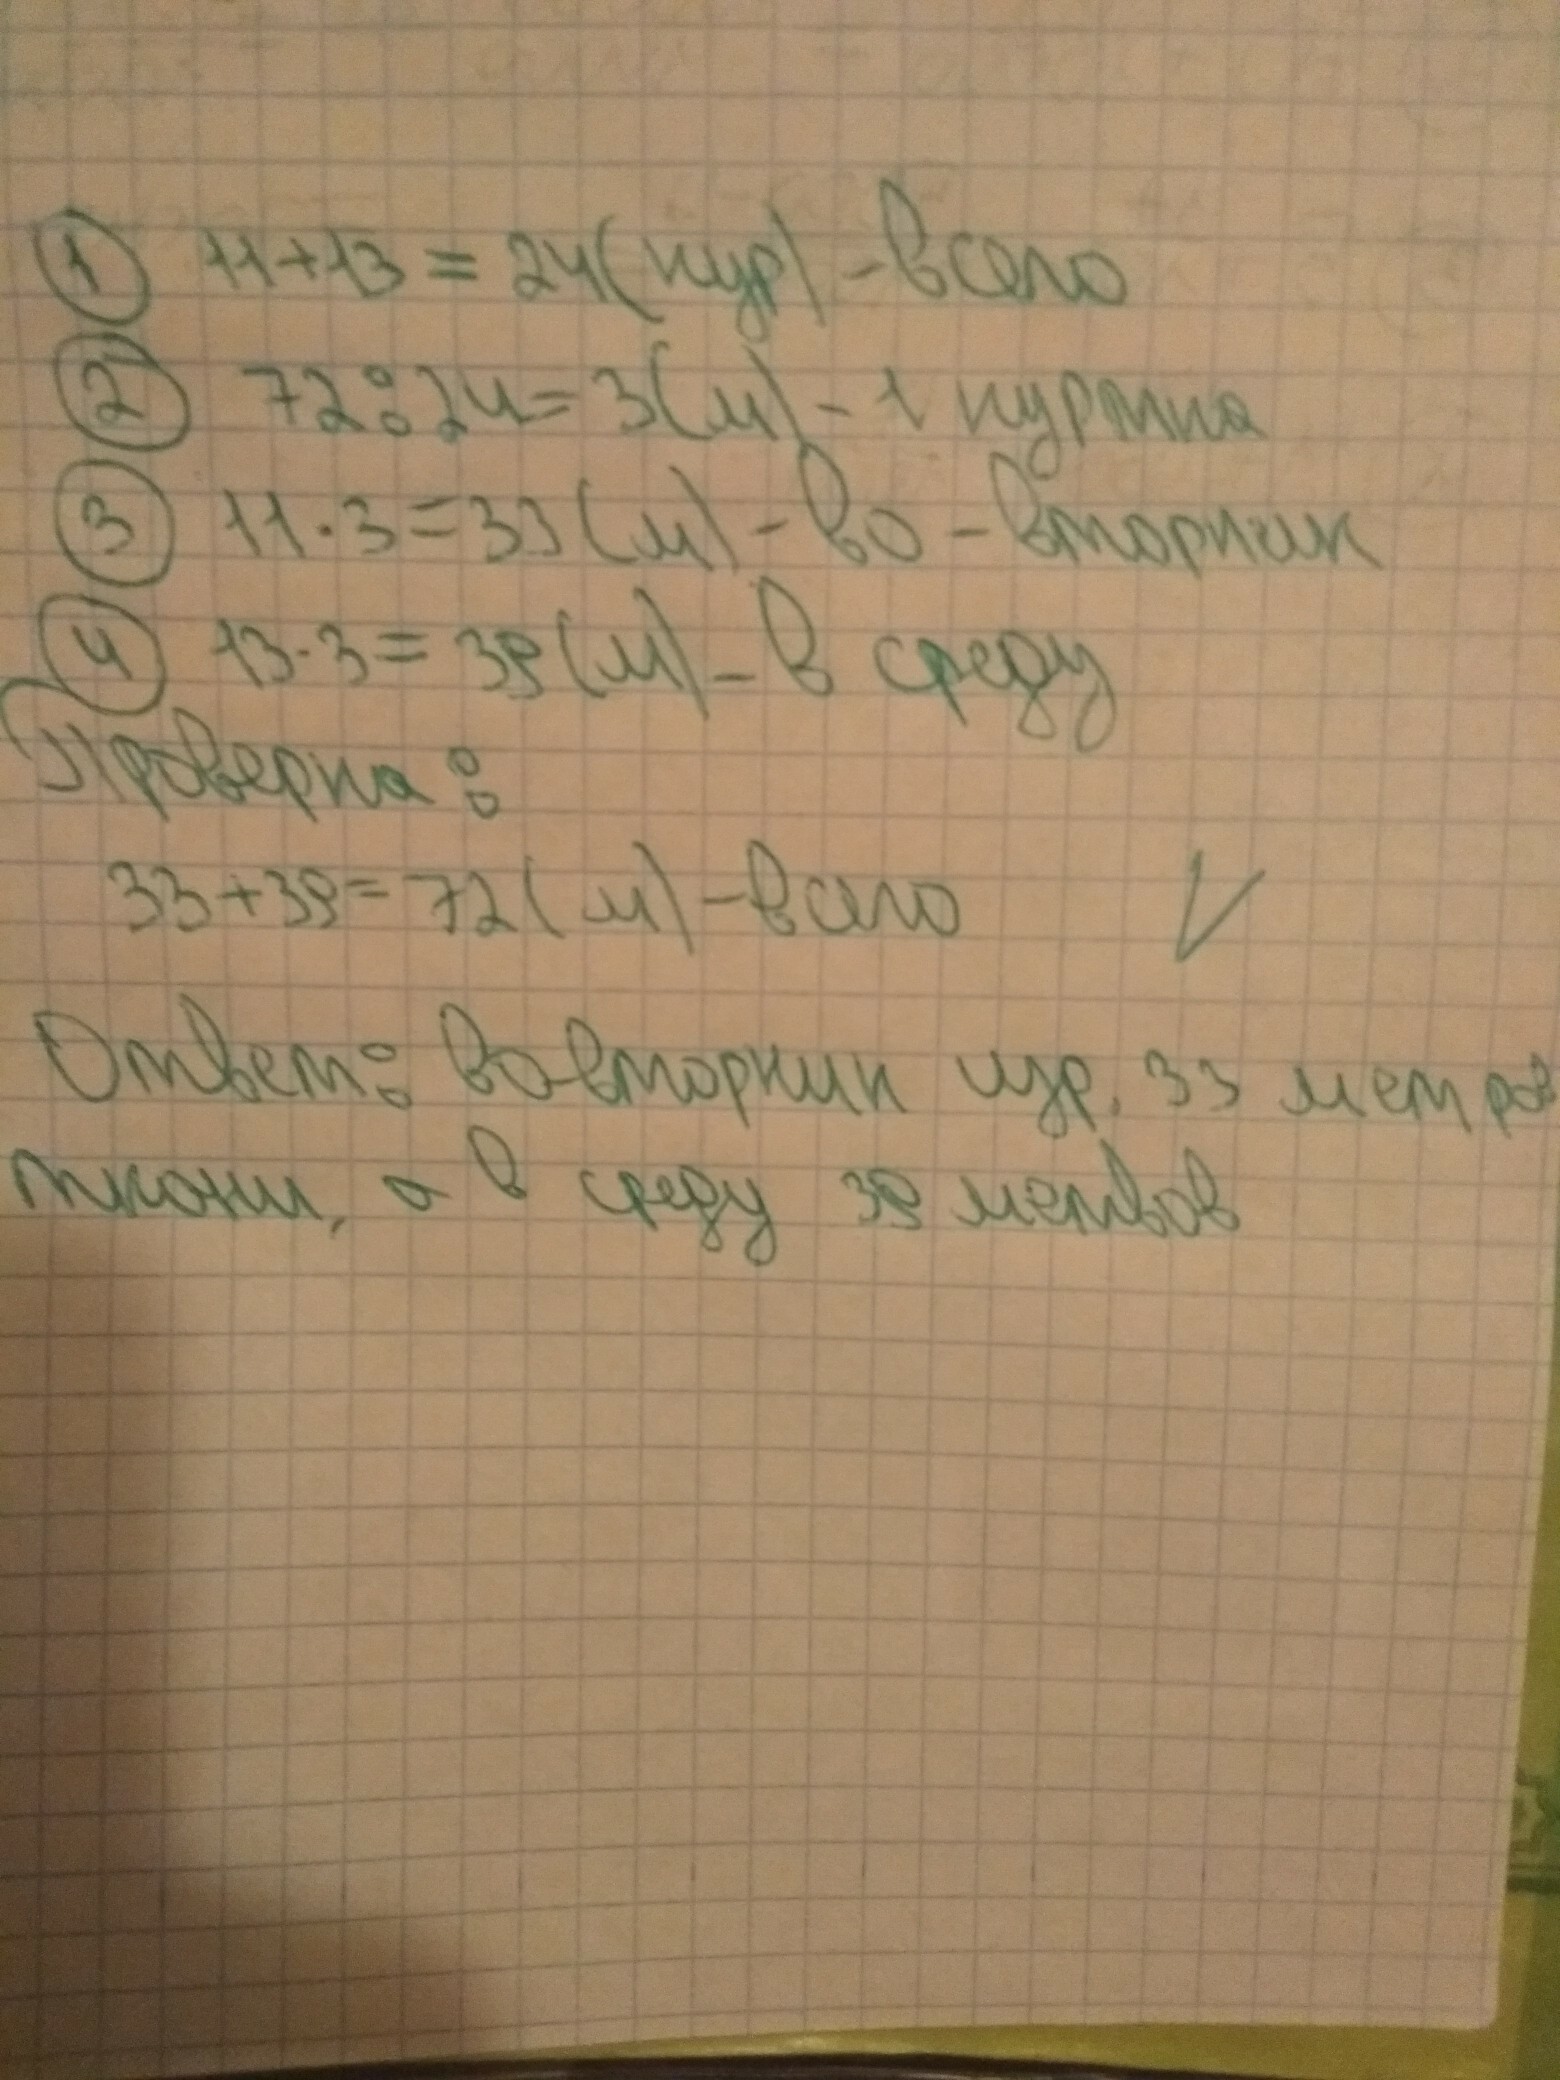 1 11+13=24(кур) - всего
2 72:24=3(м) - 1 куртка
3 11·3=33(м) - во - вторник
4 13·3=39(м) - в среду
Проверка:
33+39=72(м) - всего V
Ответ: во-вторник изр. 33 метров
ткани, а в среду 39 метвов